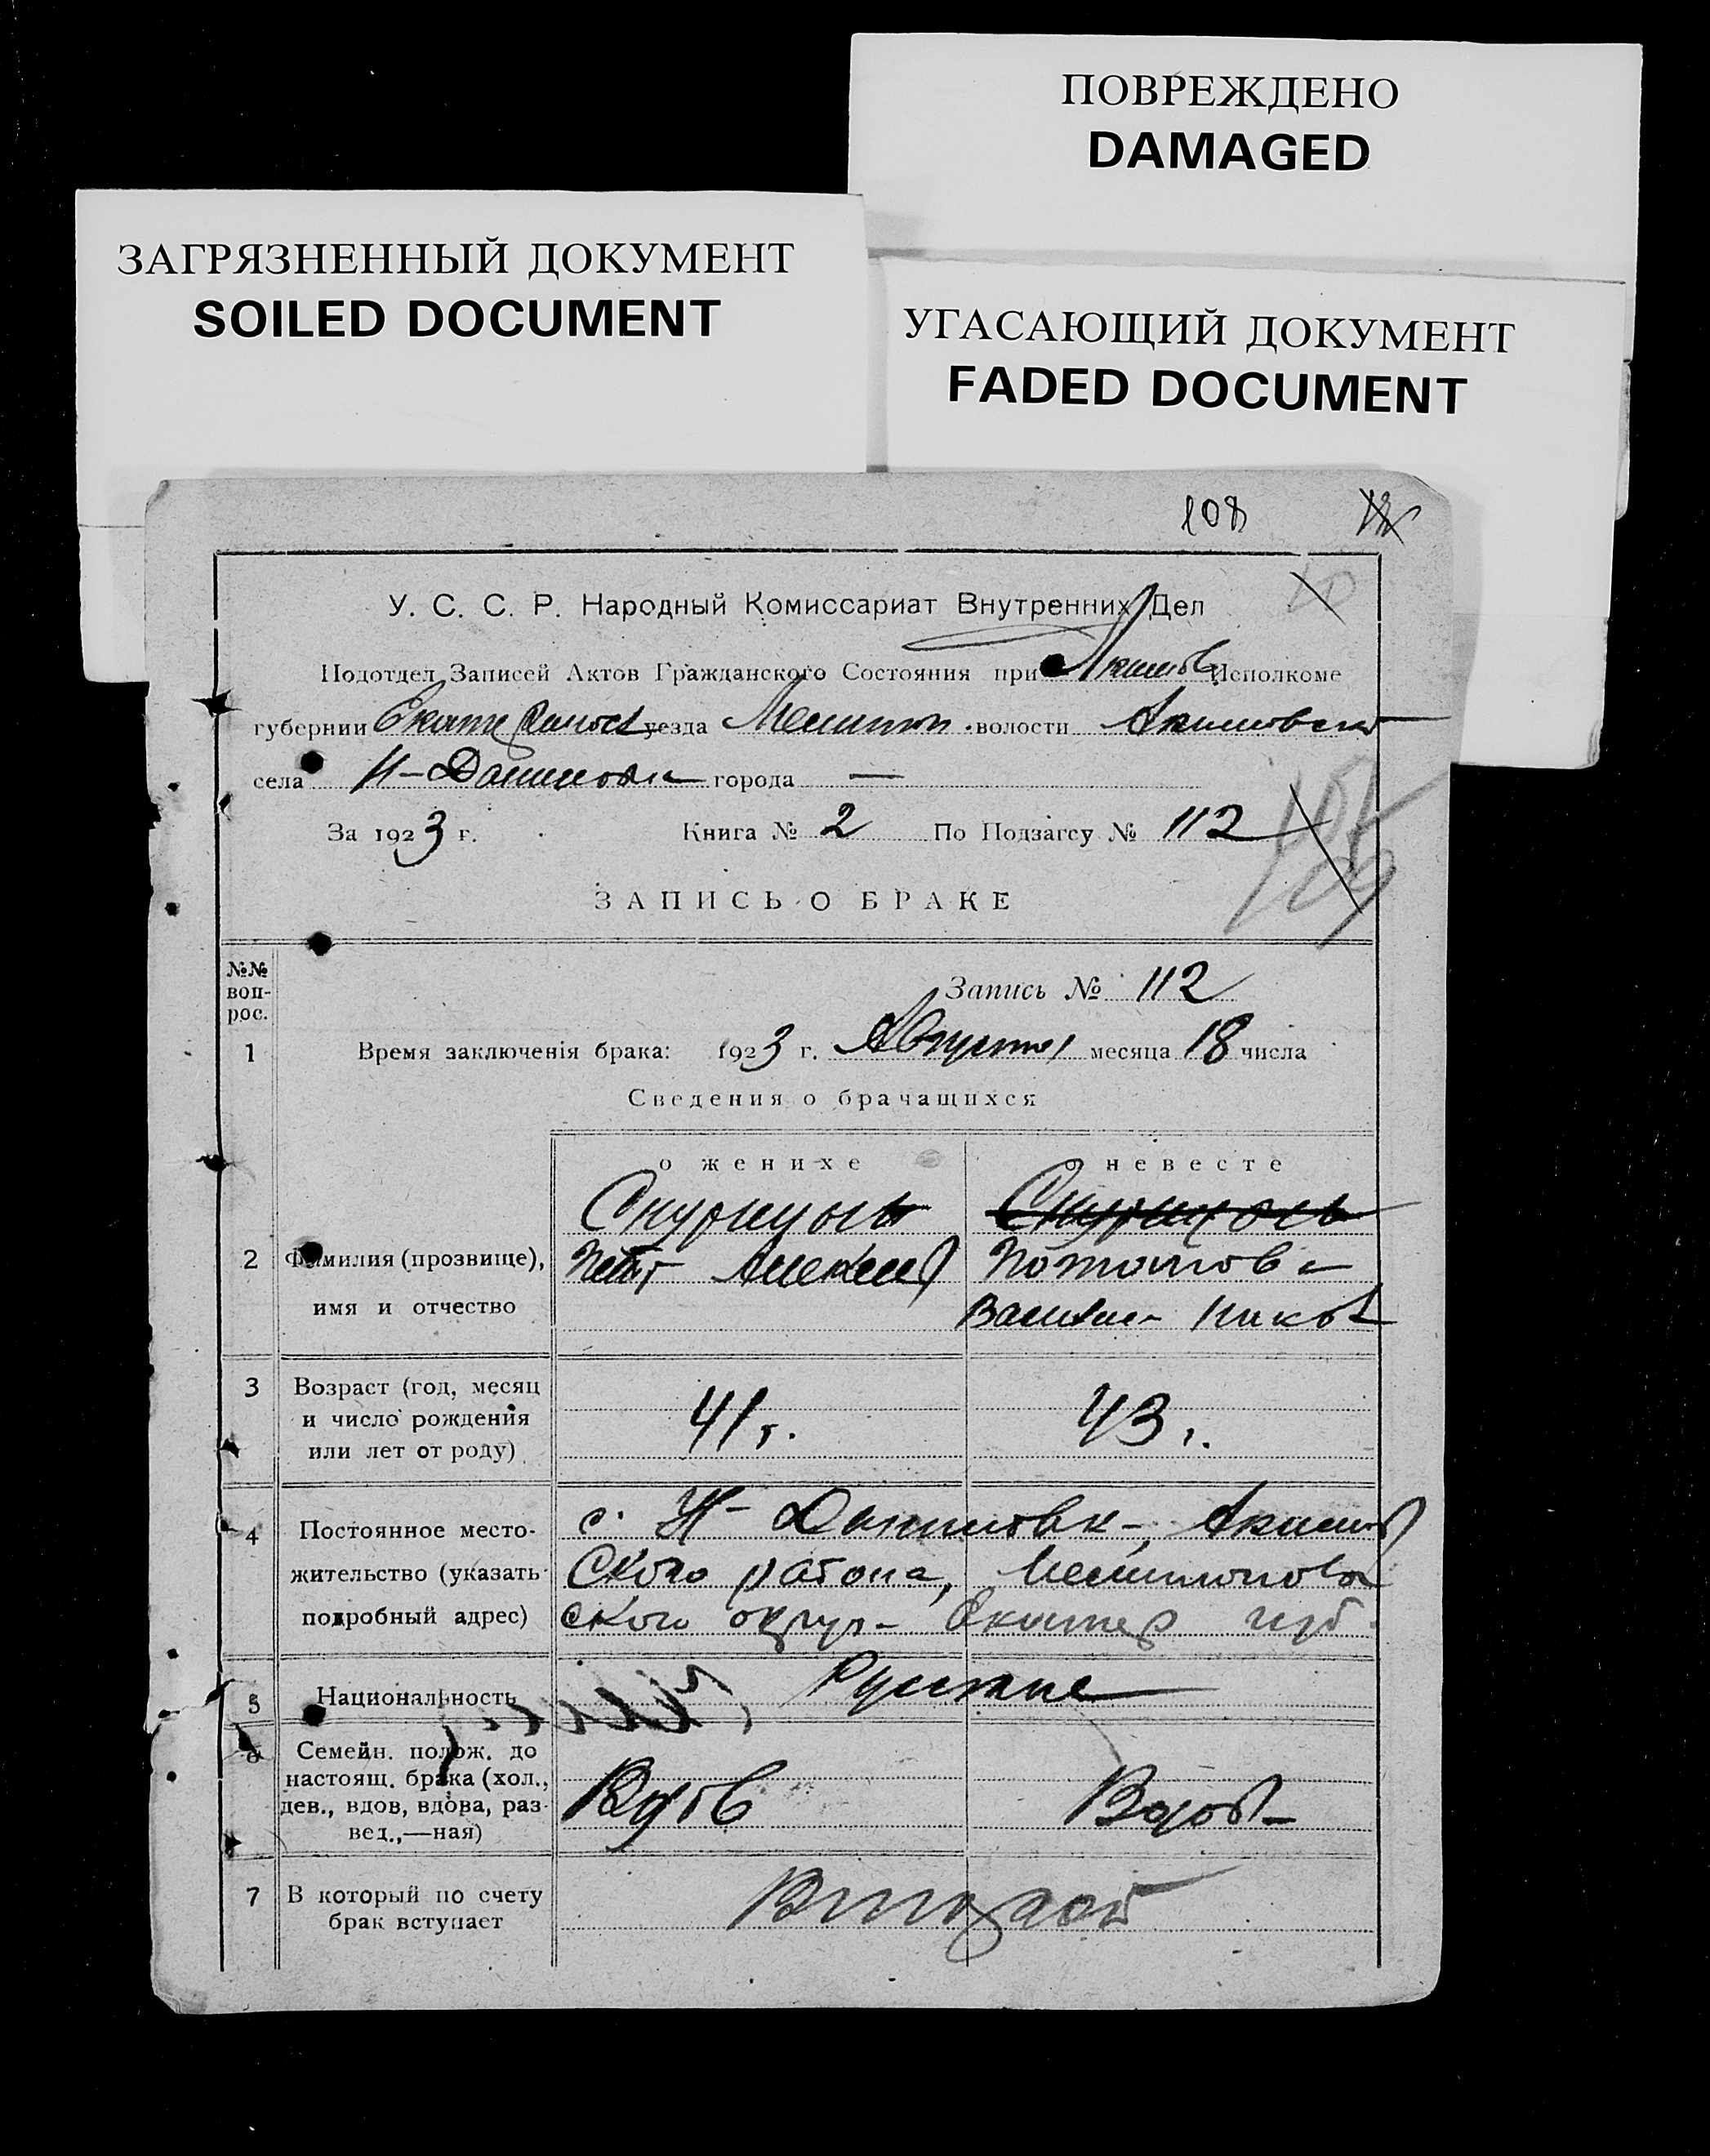 ПОВРЕЖДЕНО
DAMAGED
ЗАГРЯЗНЕННЫЙ ДОКУМЕНТ
SOILED DOCUMENT
УГАСАЮЩИЙ ДОКУМЕНТ
FADED DOCUMENT
108
У. С. С. Р. Народный Комиссариат Внутренних Дел
Подотдел Записей Актов Гражданского Состояния при Акимов Исполкоме
губернии уезда волости Акимовско
села Н-Даниловка города —
За 1923 г. Книга № 2 По Подзагсу № 112
ЗАПИСЬ О БРАКЕ
№№ воп-рос.
Запись № 112
1 Время заключенія брака: 1923 г. Августа месяца 18 числа
Сведения о брачащихся
о женихе о невесте
2 Фамилия (прозвище),
имя и отчество
Петр Алексеев
3 Возраст (год, месяц
и число рождения
или лет от роду)
41 г. 43 г.
4 Постоянное место-
жительство (указать
подробный адрес)
с. Н-Даниловка, Акимов
ского района,
ского округа Екатер губ.
5 Национальность Русские
6 Семейн. полож. до
настоящ. брака (хол.,
дев., вдов, вдова, раз-
вед.,—ная)
Вдов Вдова
7 В который по счету
брак вступает
Второй